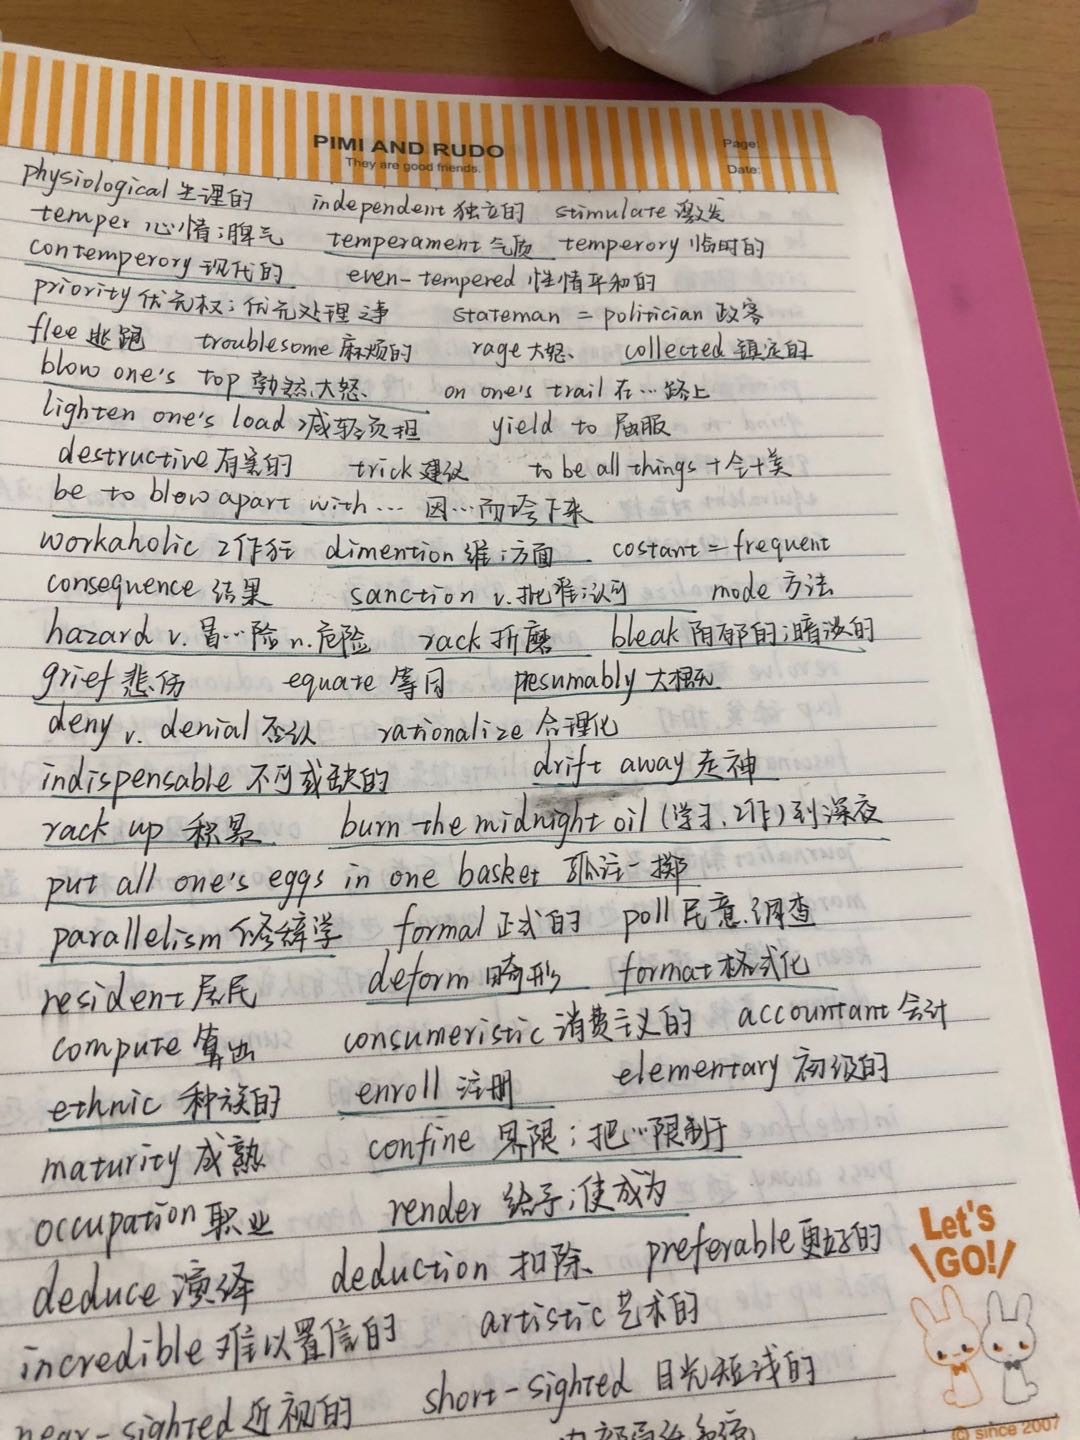 PIMI AND RUDO
They are good friends.
Page:
Date:
physiological 生理的 independent 独立的 stimulate 激发
temper 心情;脾气 temperament 气质 temperory 临时的
contemperory 现代的 even-tempered 性情平和的
priority 优先权;优先处理之事 stateman = politician 政客
flee 逃跑 troublesome 麻烦的 rage 大怒 collected 镇定的
blow one's top 勃然大怒 on one's trail 在…路上
lighten one's load 减轻负担 yield to 屈服
destructive 有害的 trick 建议 to be all things 十全十美
be to blow apart with… 因…而垮下来
workaholic 工作狂 dimention 维;方面 costant = frequent
consequence 结果 sanction v.批准;认可 mode 方法
hazard v.冒…险 n.危险 rack 折磨 bleak 阴郁的;暗淡的
grief 悲伤 equate 等同 presumably 大概
deny v. denial 否认 rationalize 合理化
indispensable 不可或缺的 drift away 走神
rack up 积累 burn the midnight oil (学习、工作)到深夜
put all one's eggs in one basket 孤注一掷
parallelism 修辞学 formal 正式的 poll 民意调查
resident 居民 deform 畸形 format 格式化
compute 算出 consumeristic 消费主义的 accountant 会计
ethnic 种族的 enroll 注册 elementary 初级的
maturity 成熟 confine 界限;把…限制于
occupation 职业 render 给予;使成为
deduce 演绎 deduction 扣除 preferable 更好的
incredible 难以置信的 artistic 艺术的
near-sighted 近视的 short-sighted 目光短浅的
Let's
GO!
© since 2007